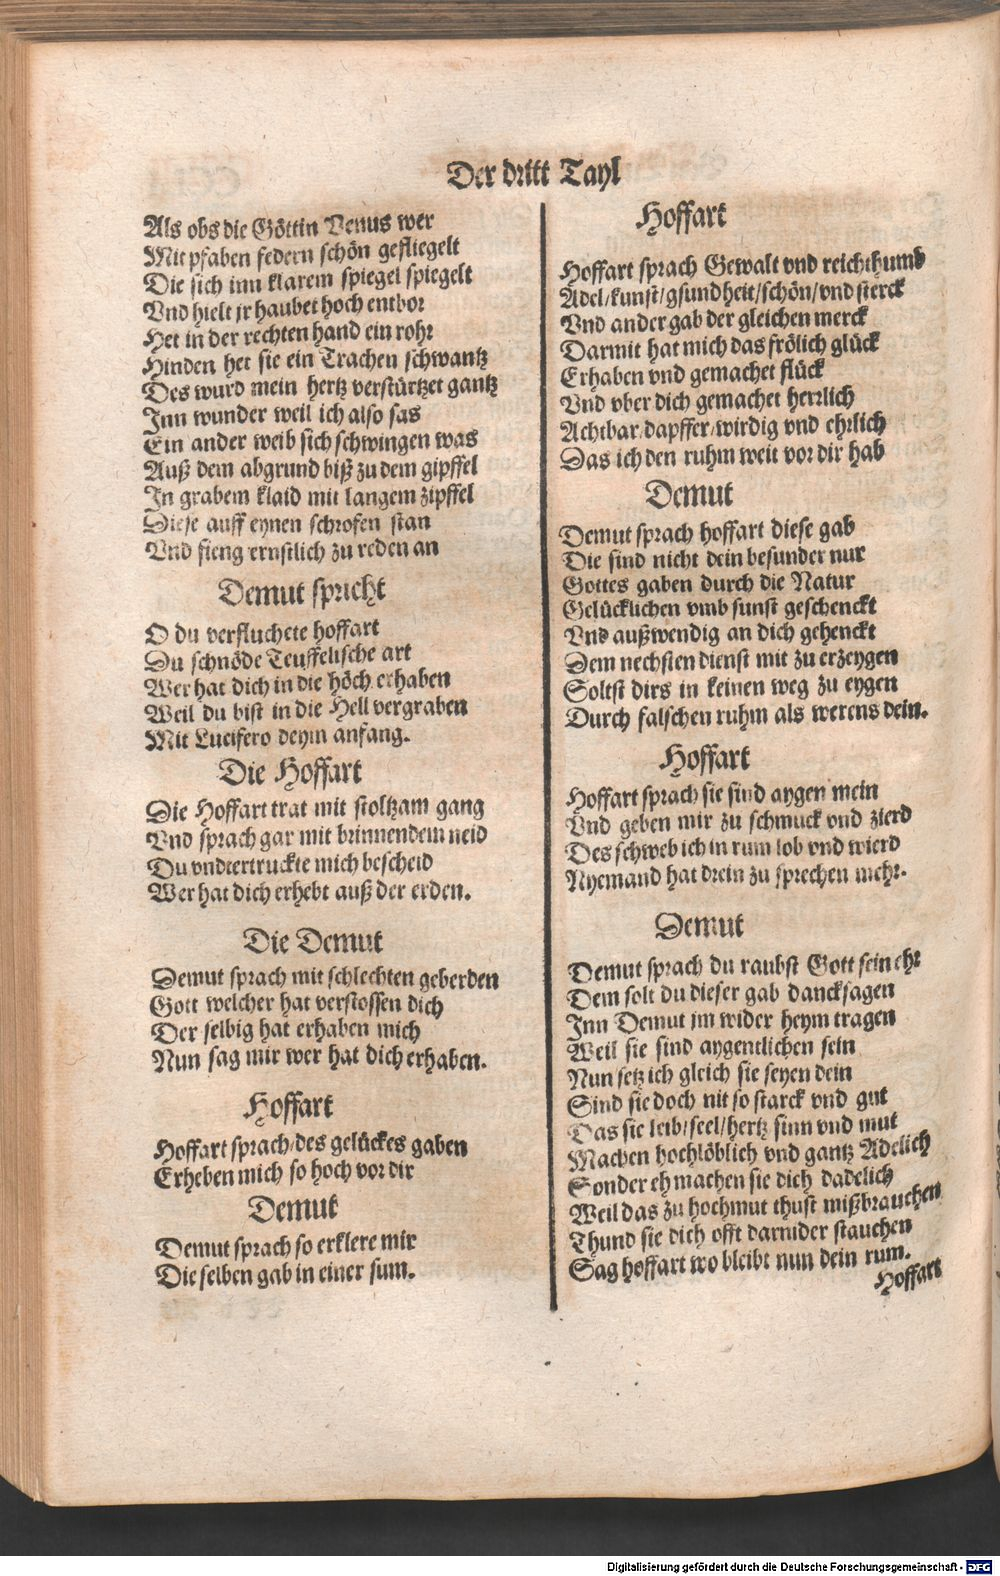 Der dritt Tayl
Als obs die Göttin Venus wer
Mit pfaben federn schön gefliegelt
Die sich inn klarem spiegel spiegelt
Vnd hielt jr haubet hoch entbor
Het in der rechten hand ein rohr
Hinden het sie ein Trachen schwantz
Des wurd mein hertz verstürtzet gantz
Inn wunder weil ich also sas
Ein ander weib sich schwingen was
Auß dem abgrund biß zu dem gipffel
In grabem klaid mit langem zipffel
Diese auff eynen schrofen stan
Vnd fieng ernstlich zu reden an
Demut spricht
O du verfluchete hoffart
Du schnöde Teuffelische art
Wer hat dich in die höch erhaben
Weil du bist in die Hell vergraben
Mit Lucifero deym anfang.
Die Hoffart
Die Hoffart trat mit stoltzam gang
Vnd sprach gar mit brinnendem neid
Du vndtertruckte mich bescheid
Wer hat dich erhebt auß der erden.
Die Demut
Demut sprach mit schlechten geberden
Gott welcher hat verstossen dich
Der selbig hat erhaben mich
Nun sag mir wer hat dich erhaben.
Hoffart
Hoffart sprach/des gelückes gaben
Erheben mich so hoch vor dir
Demut
Demut sprach so erklere mir
Die selben gab in einer sum.
Hoffart
Hoffart sprach Gewalt vnd reichthumb
Adel/kunst/gsundheit/schön/vnd sterck
Vnd ander gab der gleichen merck
Darmit hat mich das frölich glück
Erhaben vnd gemachet flück
Vnd vber dich gemachet herrlich
Achtbar/dapffer/wirdig vnd ehrlich
Das ich den ruhm weit vor dir hab
Demut
Demut sprach hoffart diese gab
Die sind nicht dein besunder nur
Gottes gaben durch die Natur
Gelücklichen vmb sunst geschenckt
Vnd außwendig an dich gehenckt
Dem nechsten dienst mit zu erzeygen
Soltst dirs in keinen weg zu eygen
Durch falschen ruhm als werens dein.
Hoffart
Hoffart sprach sie sind aygen mein
Vnd geben mir zu schmuck vnd zierd
Des schweb ich in rum lob vnd wierd
Nyemand hat drein zu sprechen mehr.
Demut
Demut sprach du raubst Gott sein ehr
Dem solt du dieser gab dancksagen
Inn Demut jm wider heym tragen
Weil sie sind aygentlichen sein
Nun setz ich gleich sie seyen dein
Sind sie doch nit so starck vnd gut
Das sie leib/seel/hertz sinn vnd mut
Machen hochlöblich vnd gantz Adelich
Sonder eh machen sie dich dadelich
Weil das zu hochmut thust mißbrauchen
Thund sie dich offt darnider stauchen
Sag hoffart wo bleibt nun dein rum.
Hoffart
Digitalisierung gefördert durch die Deutsche Forschungsgemeinschaft - DFG